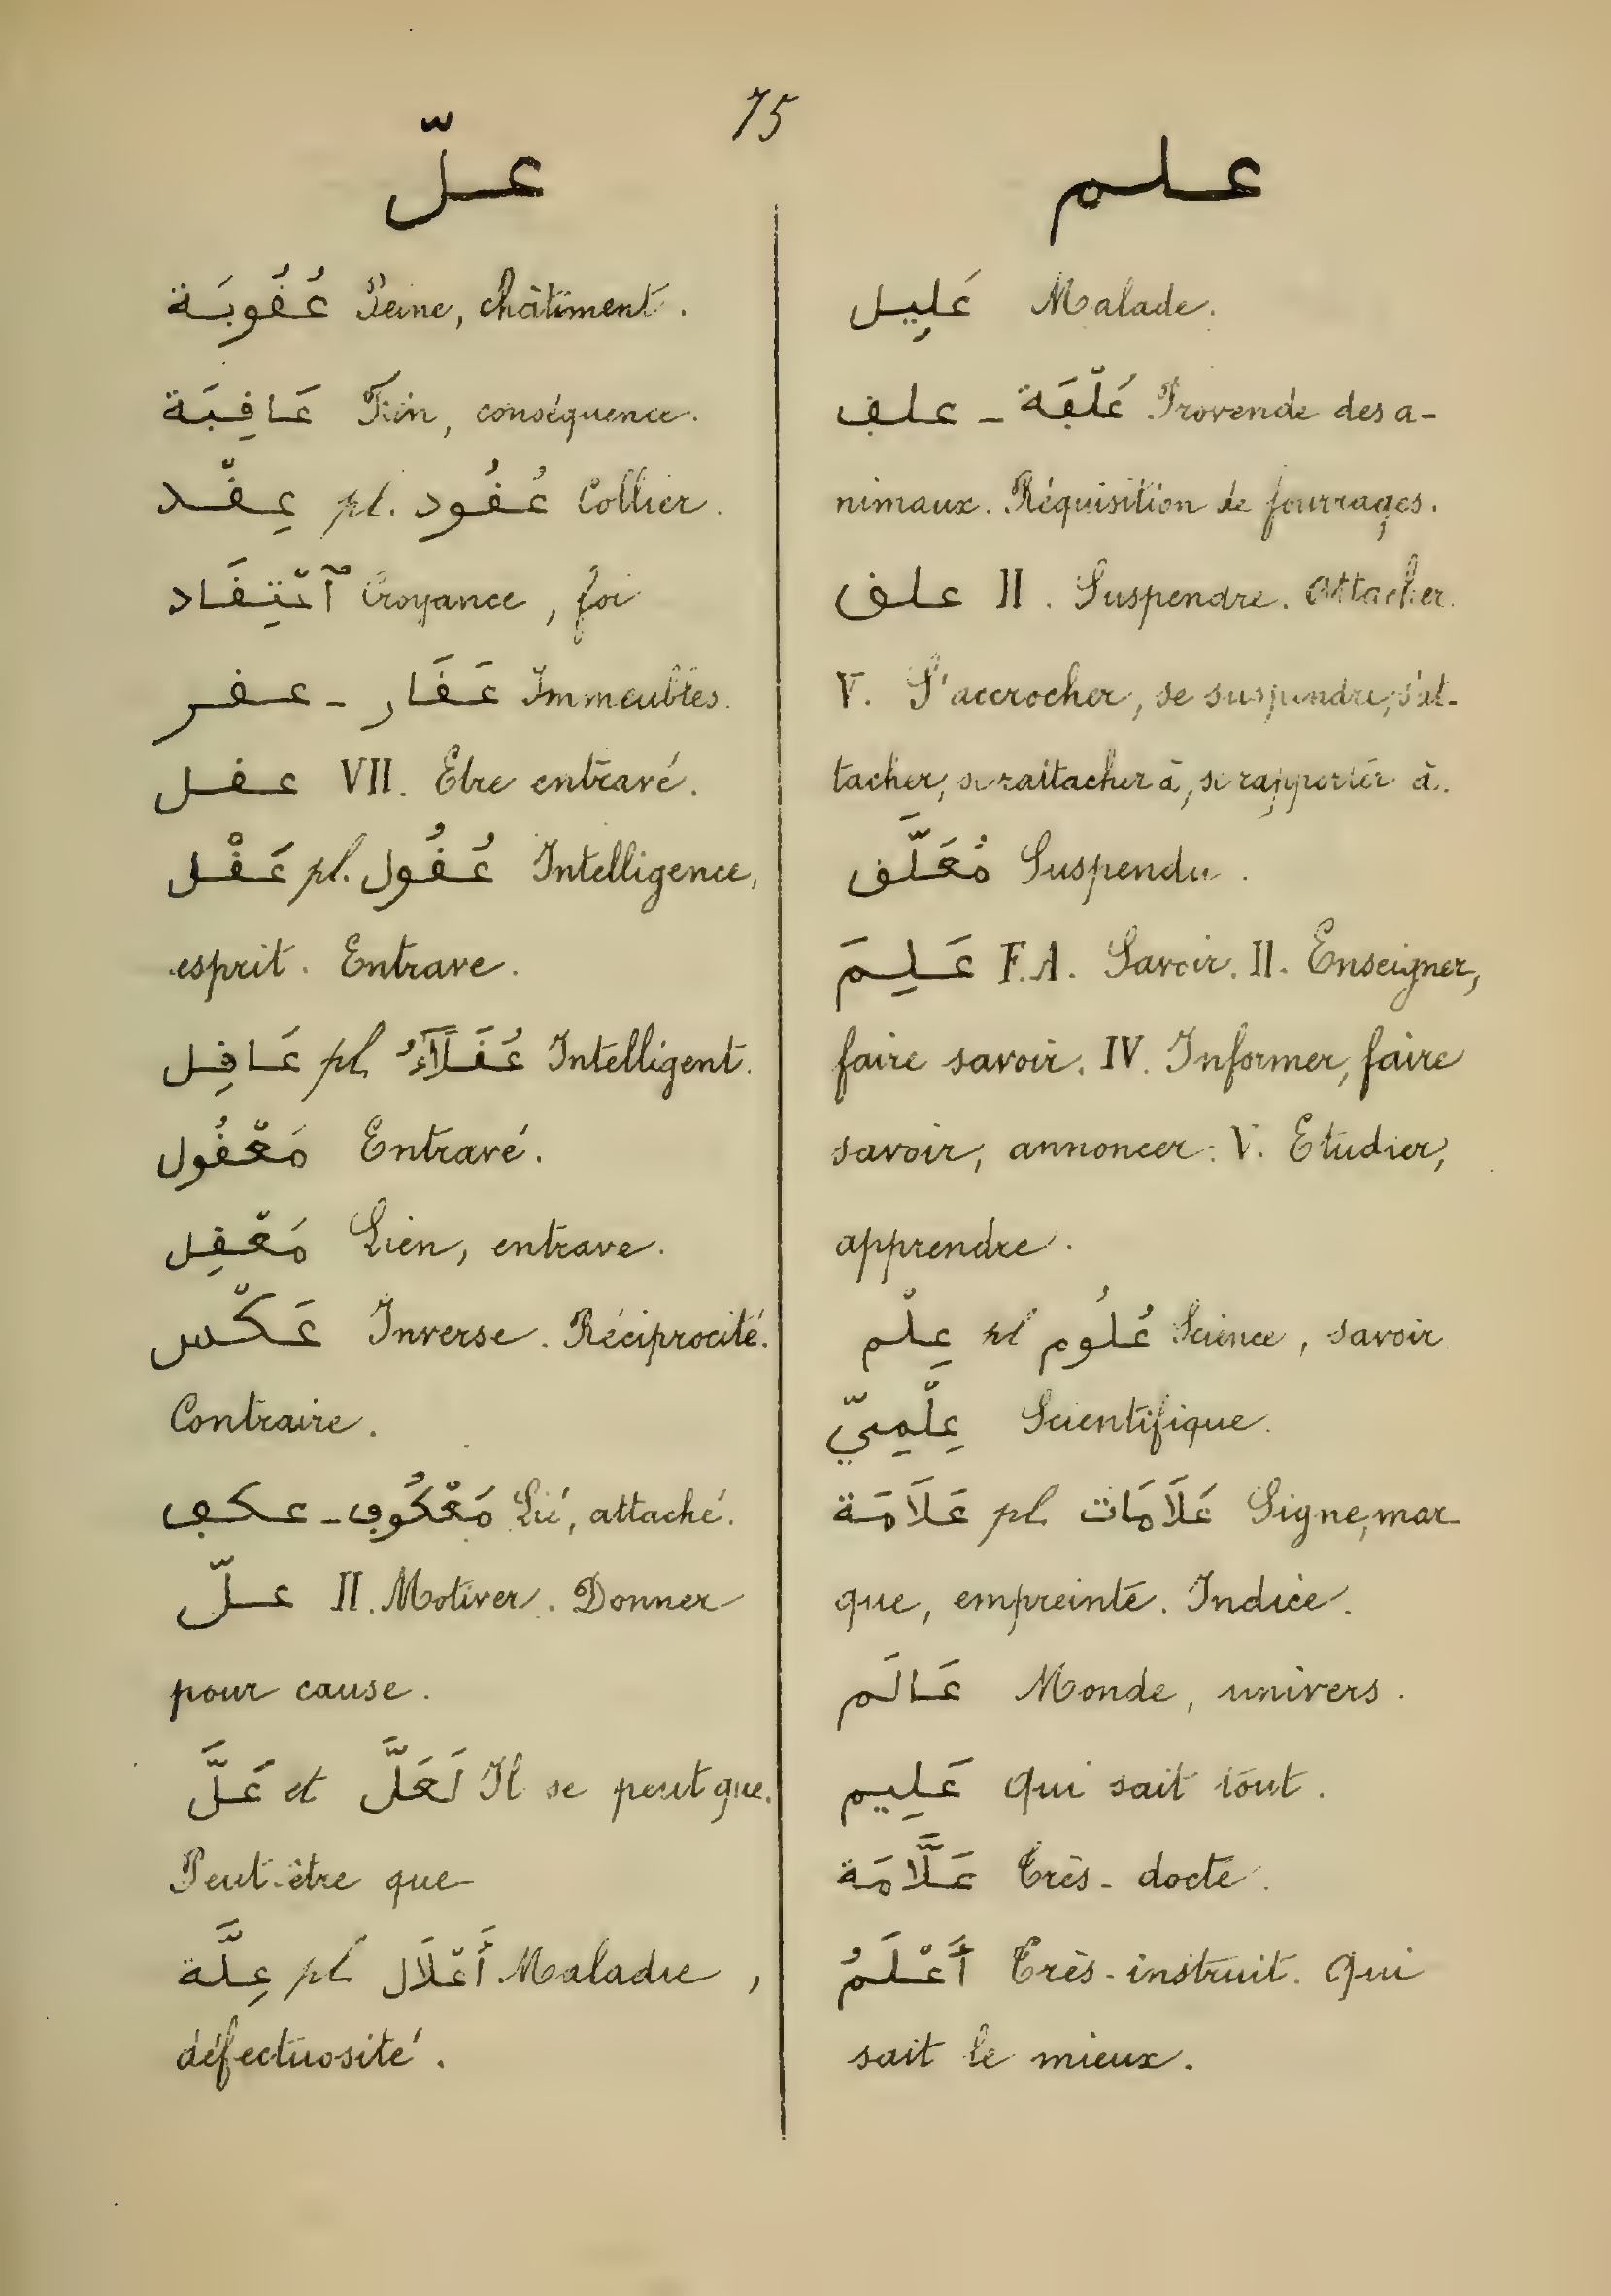 75
علّ
عُقُوبَة Peine, châtiment.
عَاقِبَة Fin, conséquence.
عِقْد pl. عُقُود Collier.
ٱعْتِقَاد Croyance, foi
عقر - عَقَار Immeubles.
عقل VII. Etre entravé.
عَقْل pl. عُقُول Intelligence,
esprit. Entrave.
عَاقِل pl. عُقَلَآءُ Intelligent.
مَعْقُول Entravé.
مَعْقِل Lien, entrave.
عَكْس Inverse. Réciprocité.
Contraire.
عكف - مَعْكُوف Lié, attaché.
علّ II. Motiver. Donner
pour cause.
عَلَّ et لَعَلَّ Il se peut que.
Peut-être que
عِلَّة pl. أَعْلَال Maladie,
défectuosité.
علم
عَلِيل Malade.
علف - عَلْفَة Provende des a-
nimaux. Réquisition de fourrages.
علق II. Suspendre. Attacher.
V. S'accrocher, se suspendre, s'at-
tacher, se rattacher à, se rapporter à.
مُعَلَّق Suspendu.
عَلِمَ F.A. Savoir. II. Enseigner,
faire savoir. IV. Informer, faire
savoir, annoncer. V. Etudier,
apprendre.
عِلْم pl عُلُوم Science, savoir
عِلْمِيّ Scientifique.
عَلَامَة pl. عَلَامَات Signe, mar-
que, empreinte. Indice.
عَالَم Monde, univers.
عَلِيم Qui sait tout.
عَلَّامَة Très-docte.
أَعْلَمُ Très-instruit. Qui
sait le mieux.